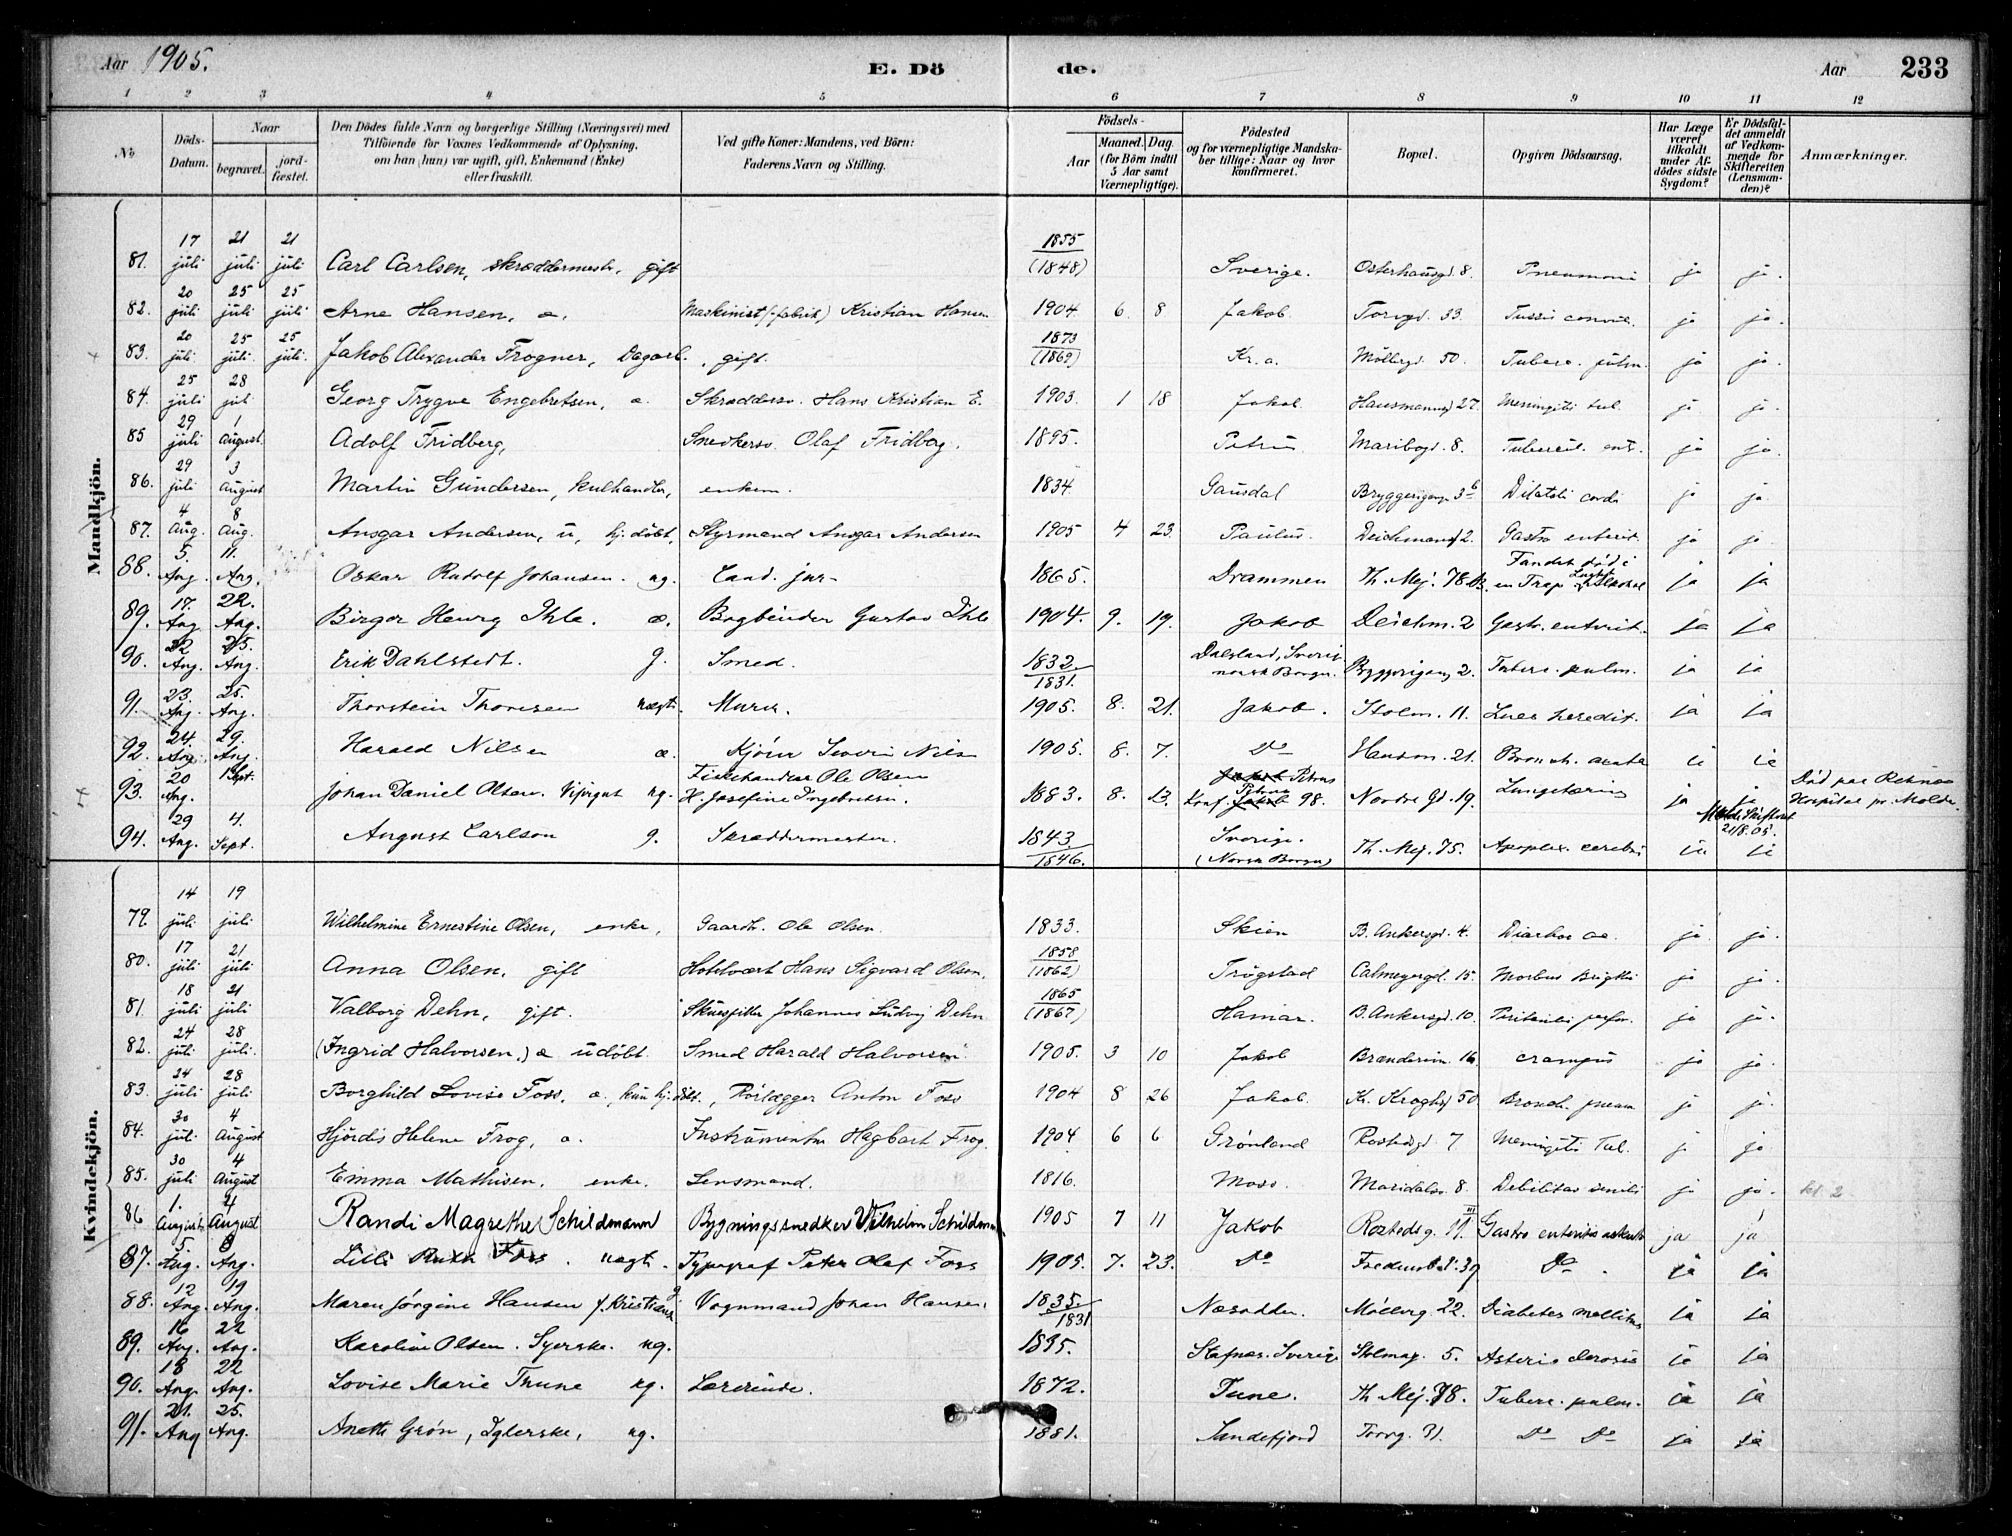 Aar 1905. E. Dö de. Aar 233
1 2 3 4 5 6 7 8 9 10 11 12
No Döds-Datum. Naar begravet. jordfæstet. Den Dödes fulde Navn og borgerlige Stilling (Næringsvei) med Tilföiende for Voxnes Vedkommende af Oplysning, om han (hun) var ugift, gift, Enkemand (Enke) eller fraskilt. Ved gifte Koner: Mandens, ved Börn: Faderens Navn og Stilling. Födsels- Aar Maaned. Dag. (for Börn indtil 5 Aar samt Værnepligtige). Födested og for værnepligtige Mandskaber tillige: Naar og hvor konfirmeret. Bopæl. Opgiven Dödsaarsag. Har Læge været tilkaldt under Afdödes sidste Sygdom? Er Dödsfaldet anmeldt af Vedkommende for Skifteretten (Lensmanden)? Anmærkninger.
Mandkjön.
81. 17 juli 21 juli 21 juli Carl Carlsen, skræddermest. gift 1855 (1848) Sverige. Osterhausgd. 8. Pneumoni ja ja.
82. 20 juli 25 juli 25 juli Arne Hansen, æ. Maskinist (fabrik) Kristian Hansen 1904 6 8 Jakob. Torvgd. 33. Tussis convul. ja ja.
83. 20 juli 25 juli. 25 juli. Jakob Alexander Frogner, Dagarb., gift. 1873 (1869) Kr.a. Möllergd. 50. Tuberc. pulm. ja ja.
84. 25 juli 28 juli Georg Trygve Engebretsen, æ. Skræddersv. Hans Kristian E. 1903. 1 18 Jakob. Hausmannsgd 27. Meningitis tub. ja ja.
85 29 juli 1 August. Adolf Fridberg, Snedkersv. Olaf Fridberg. 1895. Petrus Maribogd. 8. Tubercul. ent. ja ja.
86. 29 juli 3 August Martin Gundersen, kulhandler, enkem. 1834. Gausdal Bryggerigang 3b Dilatatio cordis ja ja.
87. 4 Aug. 8 Aug. Ansgar Andersen, u, hj. döbt, Styrmand Ansgar Andersen 1905 4 23. Paulus. Deichmansgd 2. Gastro enterit. ja ja.
88. 5. Aug. 11. Aug. Oskar Rudolf Johansen. ug. Cand. jur. 1865. Drammen Th. Mej. 78 B. Fundet död i en Trap ja ja
89. 17. Aug 22. Aug. Birger Henry Ihle. æ. Bogbinder Gustav Ihle 1904. 9. 19. Jakob Deichm. 2 Gastr. enterit. ja ja
90. 22 Aug. 25. Aug. Erik Dahlstedt. g. Smed. 1832 1831. Dalsland, Sverig. norsk Borger. Bryggerigang 2. Tuberc. pulm. ja ja
91. 23. Aug. 25. Aug. Thorstein Thoresen uægt. Murer. 1905. 8. 21. Jakob. Stolm. 11. Lues heredit. ja ja
92. 24. Aug. 29. Aug. Harald Nilsen æ. Kjörer Severin Nils 1905. 8. 7. Do Hausm. 21. Bronch. acuta ja ja
93. 20 Aug. 1 Sept. Johan Daniel Olsen. ug. Fiskehandler Ole Olsen H. Josefine Ingebretsen. 1883. 8. 13. Petrus Konf. Petrus 98. Nordre Gd. 19. Lungetæring ja ja Molde Skifteret 21/8. 05. Död paa Reknes Hospital pr. Molde.
94. 29 Aug. 4. Sept. August Carlson g. Skræddermester. 1843 1846. Sverige. (Norsk Borger) Th. Mej. 75. Apoplex. cerebri ja ja
Kvindekjön.
79. 14 juli 19 juli Wilhelmine Ernestine Olsen, enke, Gaardh. Ole Olsen. 1833. Skien B. Ankersgd. 4. Diarhoe ac. ja. ja.
80. 17 juli 21 juli Anna Olsen, gift Hotelvært Hans Sigvard Olsen. 1858 (1862) Trögstad Calmeyergd. 15. Morbus Brigthii ja ja.
81. 18 juli 21 juli Valborg Dehn, gift. Skuespiller Johannes Ludvig Dehn 1865 (1867) Hamar. B. Ankersgd. 10. Peritonitis perfor. ja ja.
82. 24 juli 28 juli. (Ingrid Halvorsen,) æ udöbt. Smed Harald Halvorsen. 1905. 3 10 Jakob Brænderiv. 16. crampus ja ja.
83. 24 juli 28 juli Borghild Lovise Foss, æ, kun hj. döbt., Rörlægger Anton Foss 1904 8 26 Jakob. Kr. Kroghsgd 50 Bronch. pneum ja ja.
84. 30 juli 4 August Hjördis Helene Frog, æ. Instrumentm Hagbart Frog. 1904 6 6 Grönland Rostedsgd. 7 Meningitis Tub. ja ja.
85. 30 juli 4 August Emma Mathisen, enke. Lensmand. 1816. Moss. Maridalsv. 8. Debilitas senilis ja ja. kl. 2
86 1. August 4 August Randi Magrethe Schildmann Bygningssnedker Vilhelm Schildmann 1905 7 11 Jakob Rostedsg. 11. III Gastro enteritis ackut ja ja
87. 5 Aug. 8 Aug. Lilli Ruth Foss. uægt. Typograf Peter Olaf Foss 1905. 7. 23. Do Fredensb.v. 39 Do. ja ja
88. 12 Aug. 19 Aug. Maren Jörgine Hansen f. Kristians. g Vognmand Johan Hansen. 1835 1831 Næsodden. Möllerg. 22. Diabetes mellitus ja ja
89. 16 Aug. 22 Aug. Karoline Olsen. Syerske. ug. 1835. Stafnæs. Sverige Stolmag. 5. ja ja
90. 18 Aug. 22 Aug. Lovise Marie Thune ug. Lærerinde. 1872. Tune. Th. Mej. 78. Tuberc. pulm. ja ja
91. 21. Aug 25. Aug. Anette Grön, ug. 1881. Sandefjord Torvg. 31. Do Do ja ja